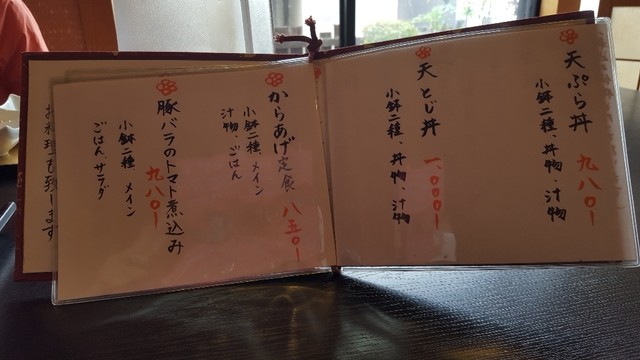 天ぷら丼 九八〇ー
小鉢二種、丼物、汁物
天とじ丼 一、〇〇〇ー
小鉢二種、丼物、汁物
からあげ定食 八五〇ー
小鉢二種、メイン
汁物、ごはん
豚バラのトマト煮込み 九八〇ー
小鉢二種、メイン
ごはん、サラダ
お料理も致します